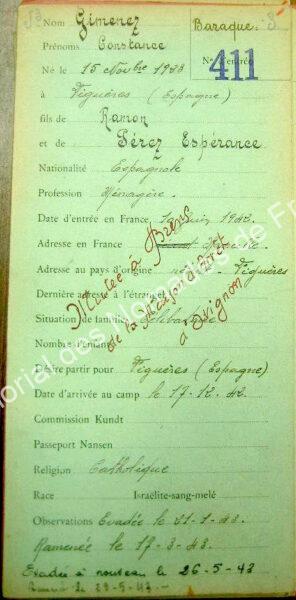 Nom Gimenez Baraque: 8
Prénoms Constance N° d'entrée
411
Né le 15 Novbre 1923
à Figuères (Espagne)
fils de Ramon
et de Pérez Espérance
Nationalité Espagnole
Profession Ménagère
Date d'entrée en France 1943
Adresse en France
Adresse au pays d'origine Figuères
Dernière adresse à l'étranger
Situation de famille Célibataire
Nombre d'enfants
Désire partir pour Figuères (Espagne)
Date d'arrivée au camp le 17-12-42
Commission Kundt
Passeport Nansen
Religion Catholique
Race Israélite-sang-mêlé
Observations Evadée le 21-1-43.
Ramenée le 17-3-43.
Evadée à nouveau le 26-5-43
le 29-5-43-
Mutée à Brens
de la Maison d'Arrêt
d'Avignon